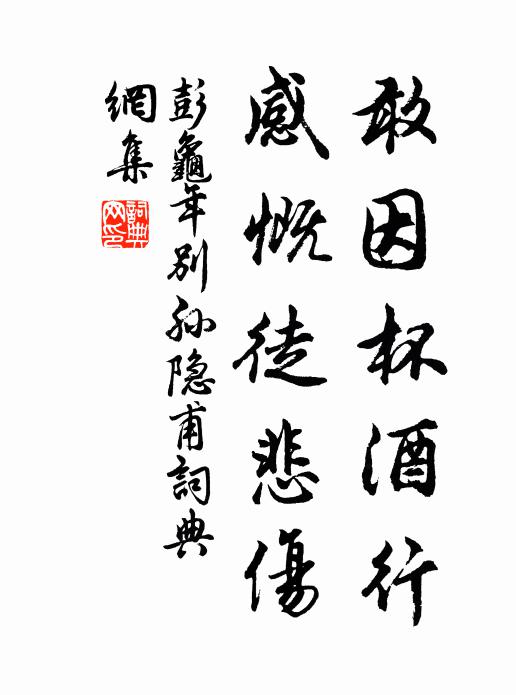 敢因杯酒行
感慨徒悲傷
彭龜年別孫隐甫詞典
網集
詞典网印